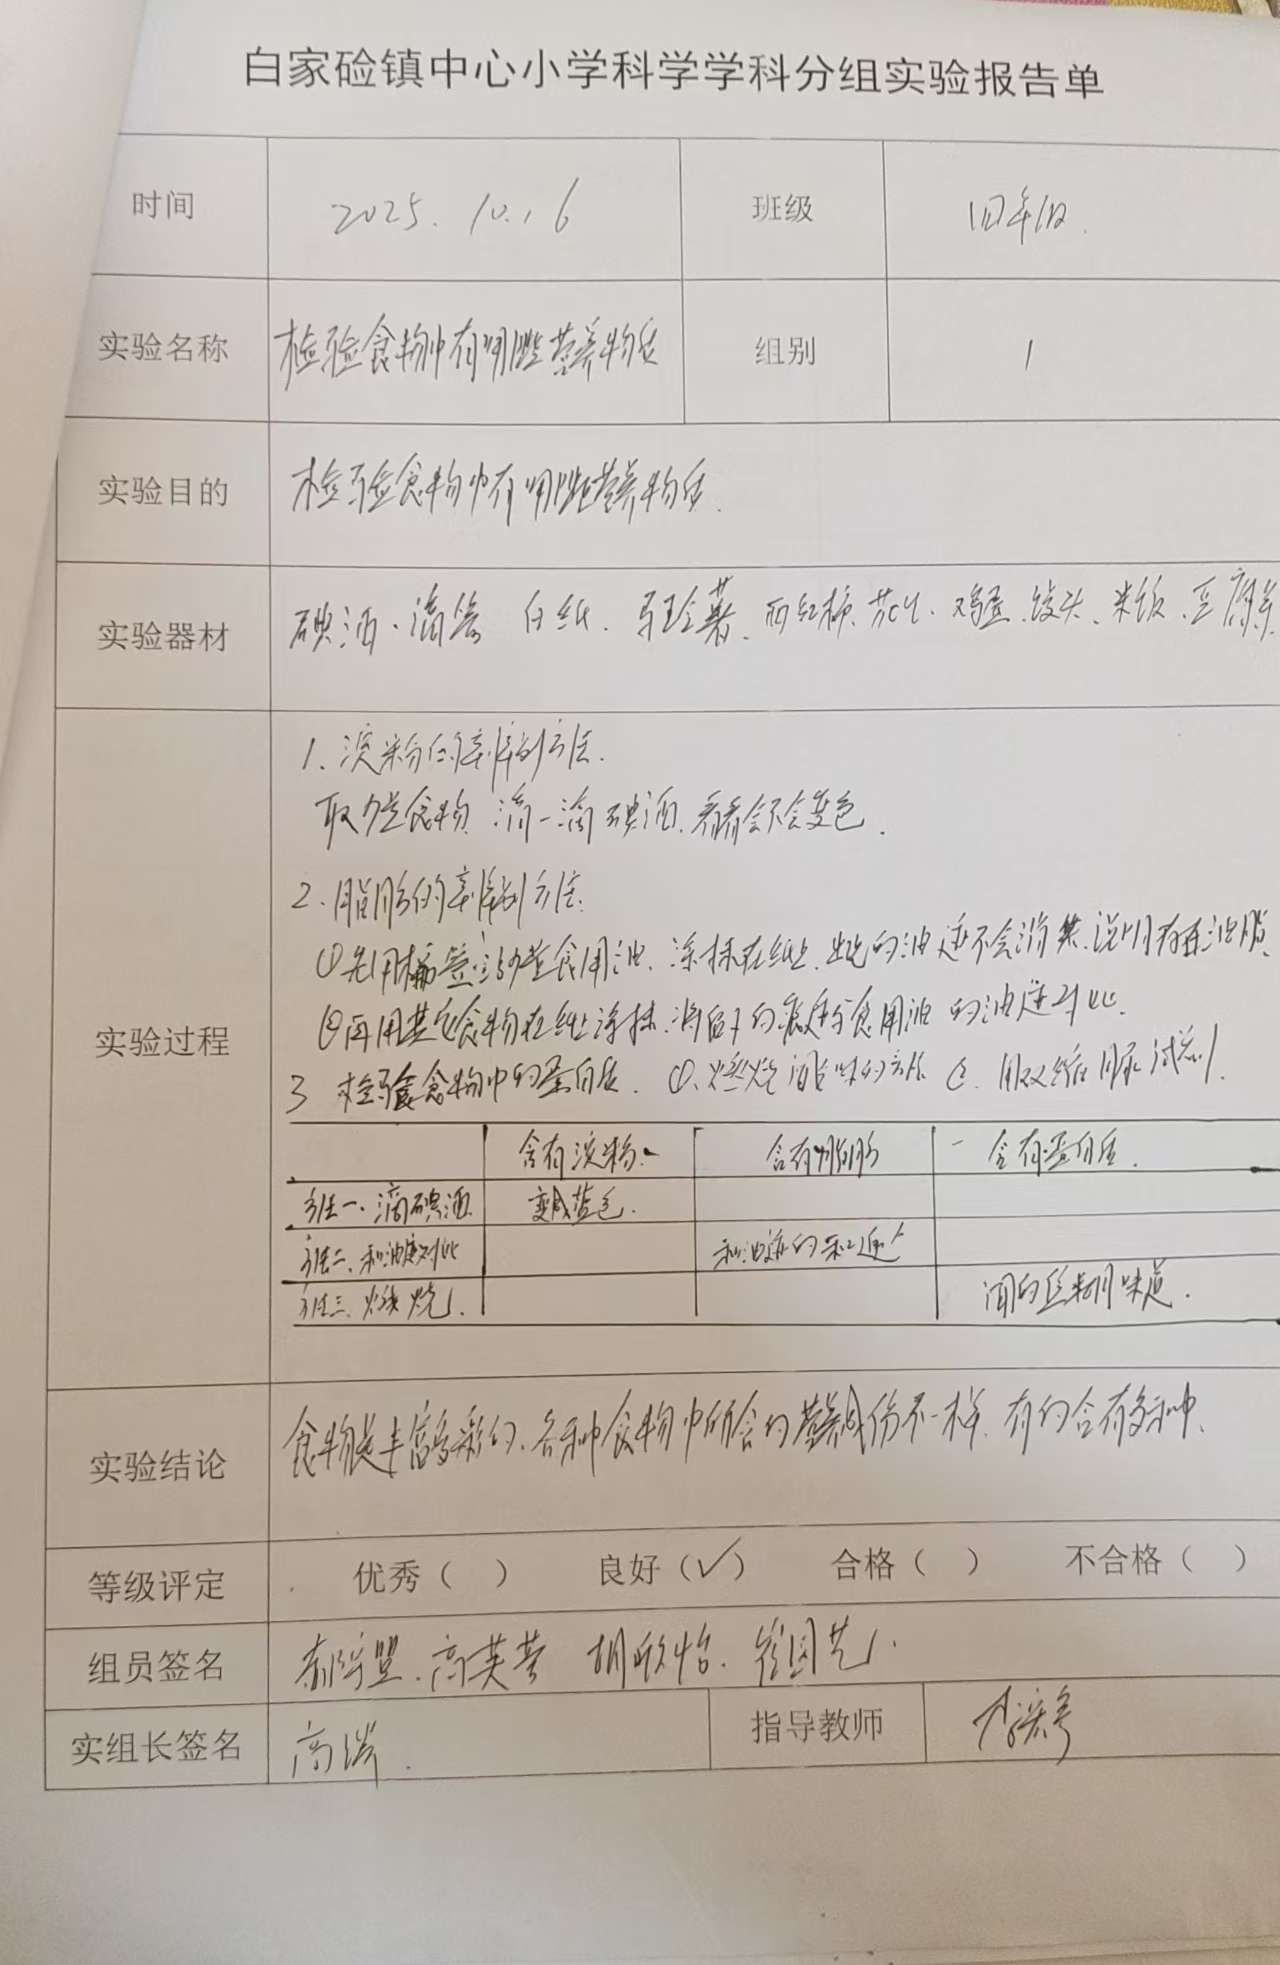 白家硷镇中心小学科学学科分组实验报告单
时间 2025.10.16 班级 四年级.
实验名称 检验食物中有哪些营养物质 组别 1
实验目的 检验食物中有哪些营养物质.
实验器材 碘酒、滴管 白纸、马铃薯、西红柿、花生、鸡蛋、馒头、米饭、豆腐等
1、淀粉的辨别方法.
取少些食物 滴一滴碘酒、看看会不会变色.
2、脂肪的辨别方法.
①先用牙签沾些食用油、涂抹在纸上、出现的油迹不会消失、说明存在油脂、
②再用其它食物在纸上涂抹、将留下的痕迹与食用油的油迹对比.
实验过程
3 检验食物中的蛋白质. ①、燃烧闻味的方法 ②、用双缩脲试剂.
含有淀粉、 含有脂肪 含有蛋白质.
方法一、滴碘酒 变成蓝色.
方法二、和油迹对比 和油迹的
方法三、燃烧. 闻的 味道.
实验结论 食物是丰富多彩的、各种食物中所含的营养成份不一样、有的含有多种、
等级评定 优秀（ ） 良好（✓） 合格（ ） 不合格（ ）
组员签名 高芙蓉 胡欣怡、
实组长签名 高瑞. 指导教师